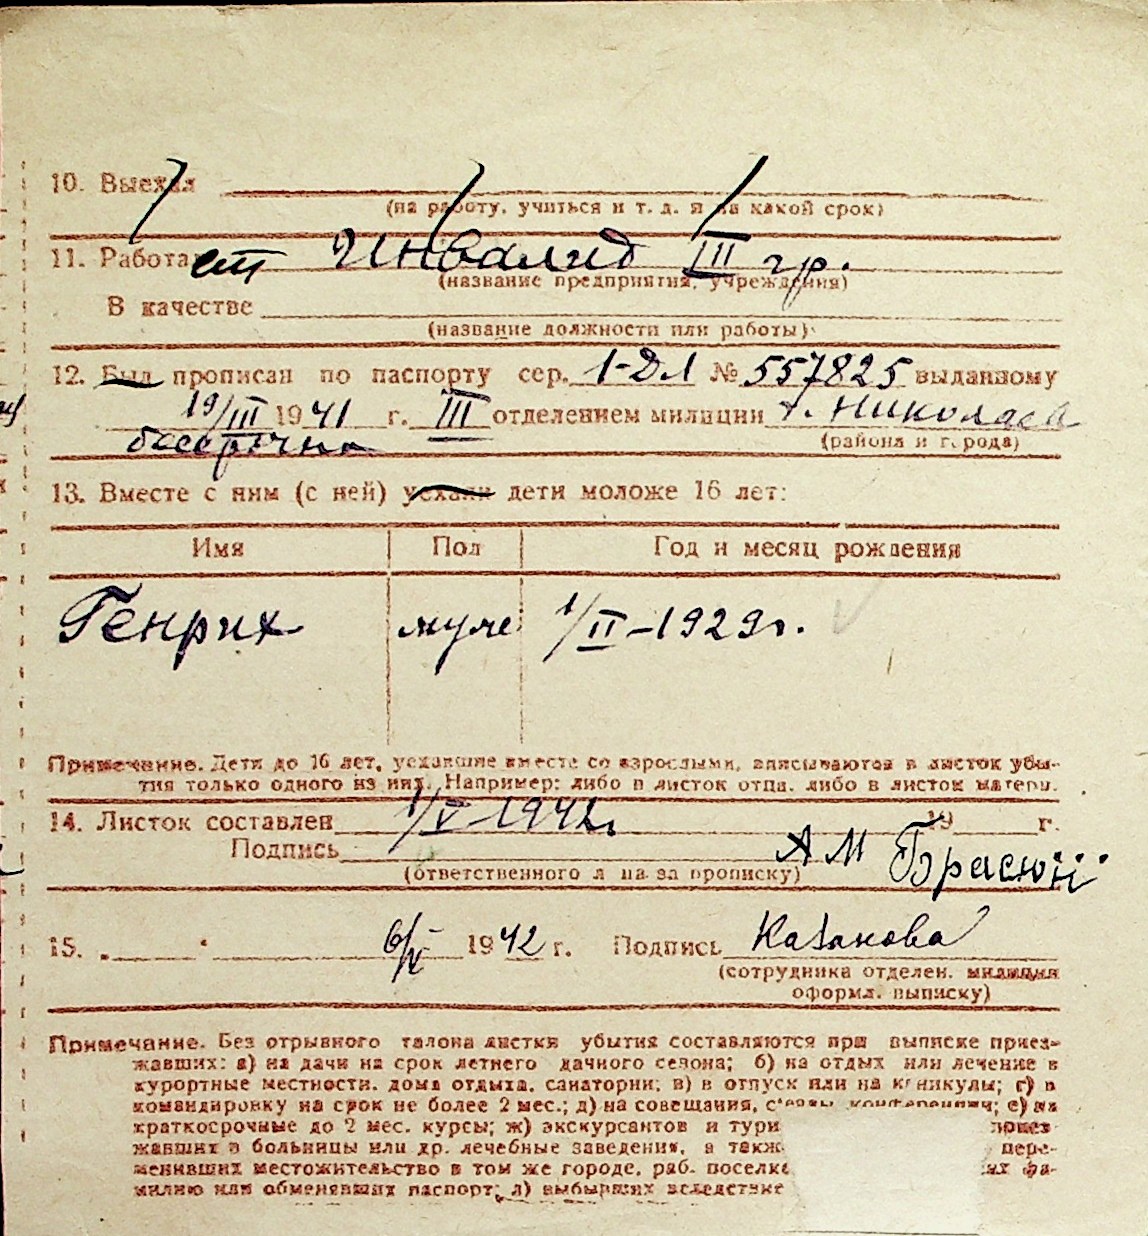 10. Выехал
(на работу, учиться и т. д. и на какой срок)
11. Работает Инвалид III гр.
(название предприятия, учреждения)
В качестве
(название должности или работы)
12. Был прописан по паспорту сер. 1-ДЛ № 557825 выданному
19/III 1941 г. III отделением милиции г. Николаев
бессрочно (района и города)
13. Вместе с ним (с ней) уехали дети моложе 16 лет:
Имя Пол Год и месяц рождения
Генрих муж 1/II-1929г.
Примечание. Дети до 16 лет, уехавшие вместе со взрослыми, вписываются в листок убы-
тия только одного из них. Например: либо в листок отца, либо в листок матери.
14. Листок составлен 1/V-1942г 19 г.
Подпись А М
(ответственного л ца за прописку)
15. 6/V 1942 г. Подпись Казакова
(сотрудника отделен. милиции
оформл. выписку)
Примечание. Без отрывного талона листки убытия составляются при выписке приез-
жавших: а) на дачи на срок летнего дачного сезона; б) на отдых или лечение в
курортные местности, дома отдыха, санатории; в) в отпуск или на каникулы; г) в
командировку на срок не более 2 мес.; д) на совещания, с'езды, конференции; е) на
краткосрочные до 2 мес. курсы; ж) экскурсантов и тури приез-
жавших в больницы или др. лечебные заведения, а такж пере-
менивших местожительство в том же городе, раб. поселке их фа-
милию или обменявших паспорт; л) выбывших вследствие